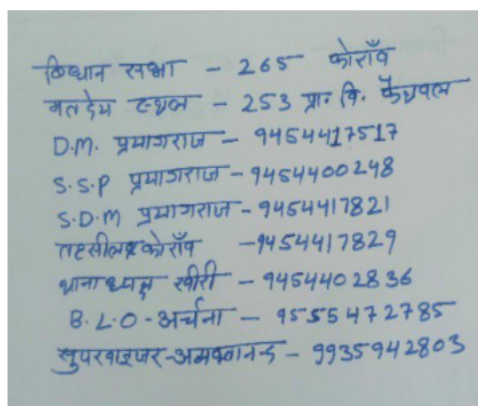 विधान सभा - 265 कोराँव
मतदेय स्थल - 253 प्रा. वि.
D.M. प्रयागराज - 9454417517
S.S.P प्रयागराज - 9454400248
S.D.M प्रयागराज - 9454417821
कोराँव - 9454417829
थानाध्यक्ष खीरी - 9454402836
B.L.O - अर्चना - 9555472785
सुपरवाइजर - - 9935942803